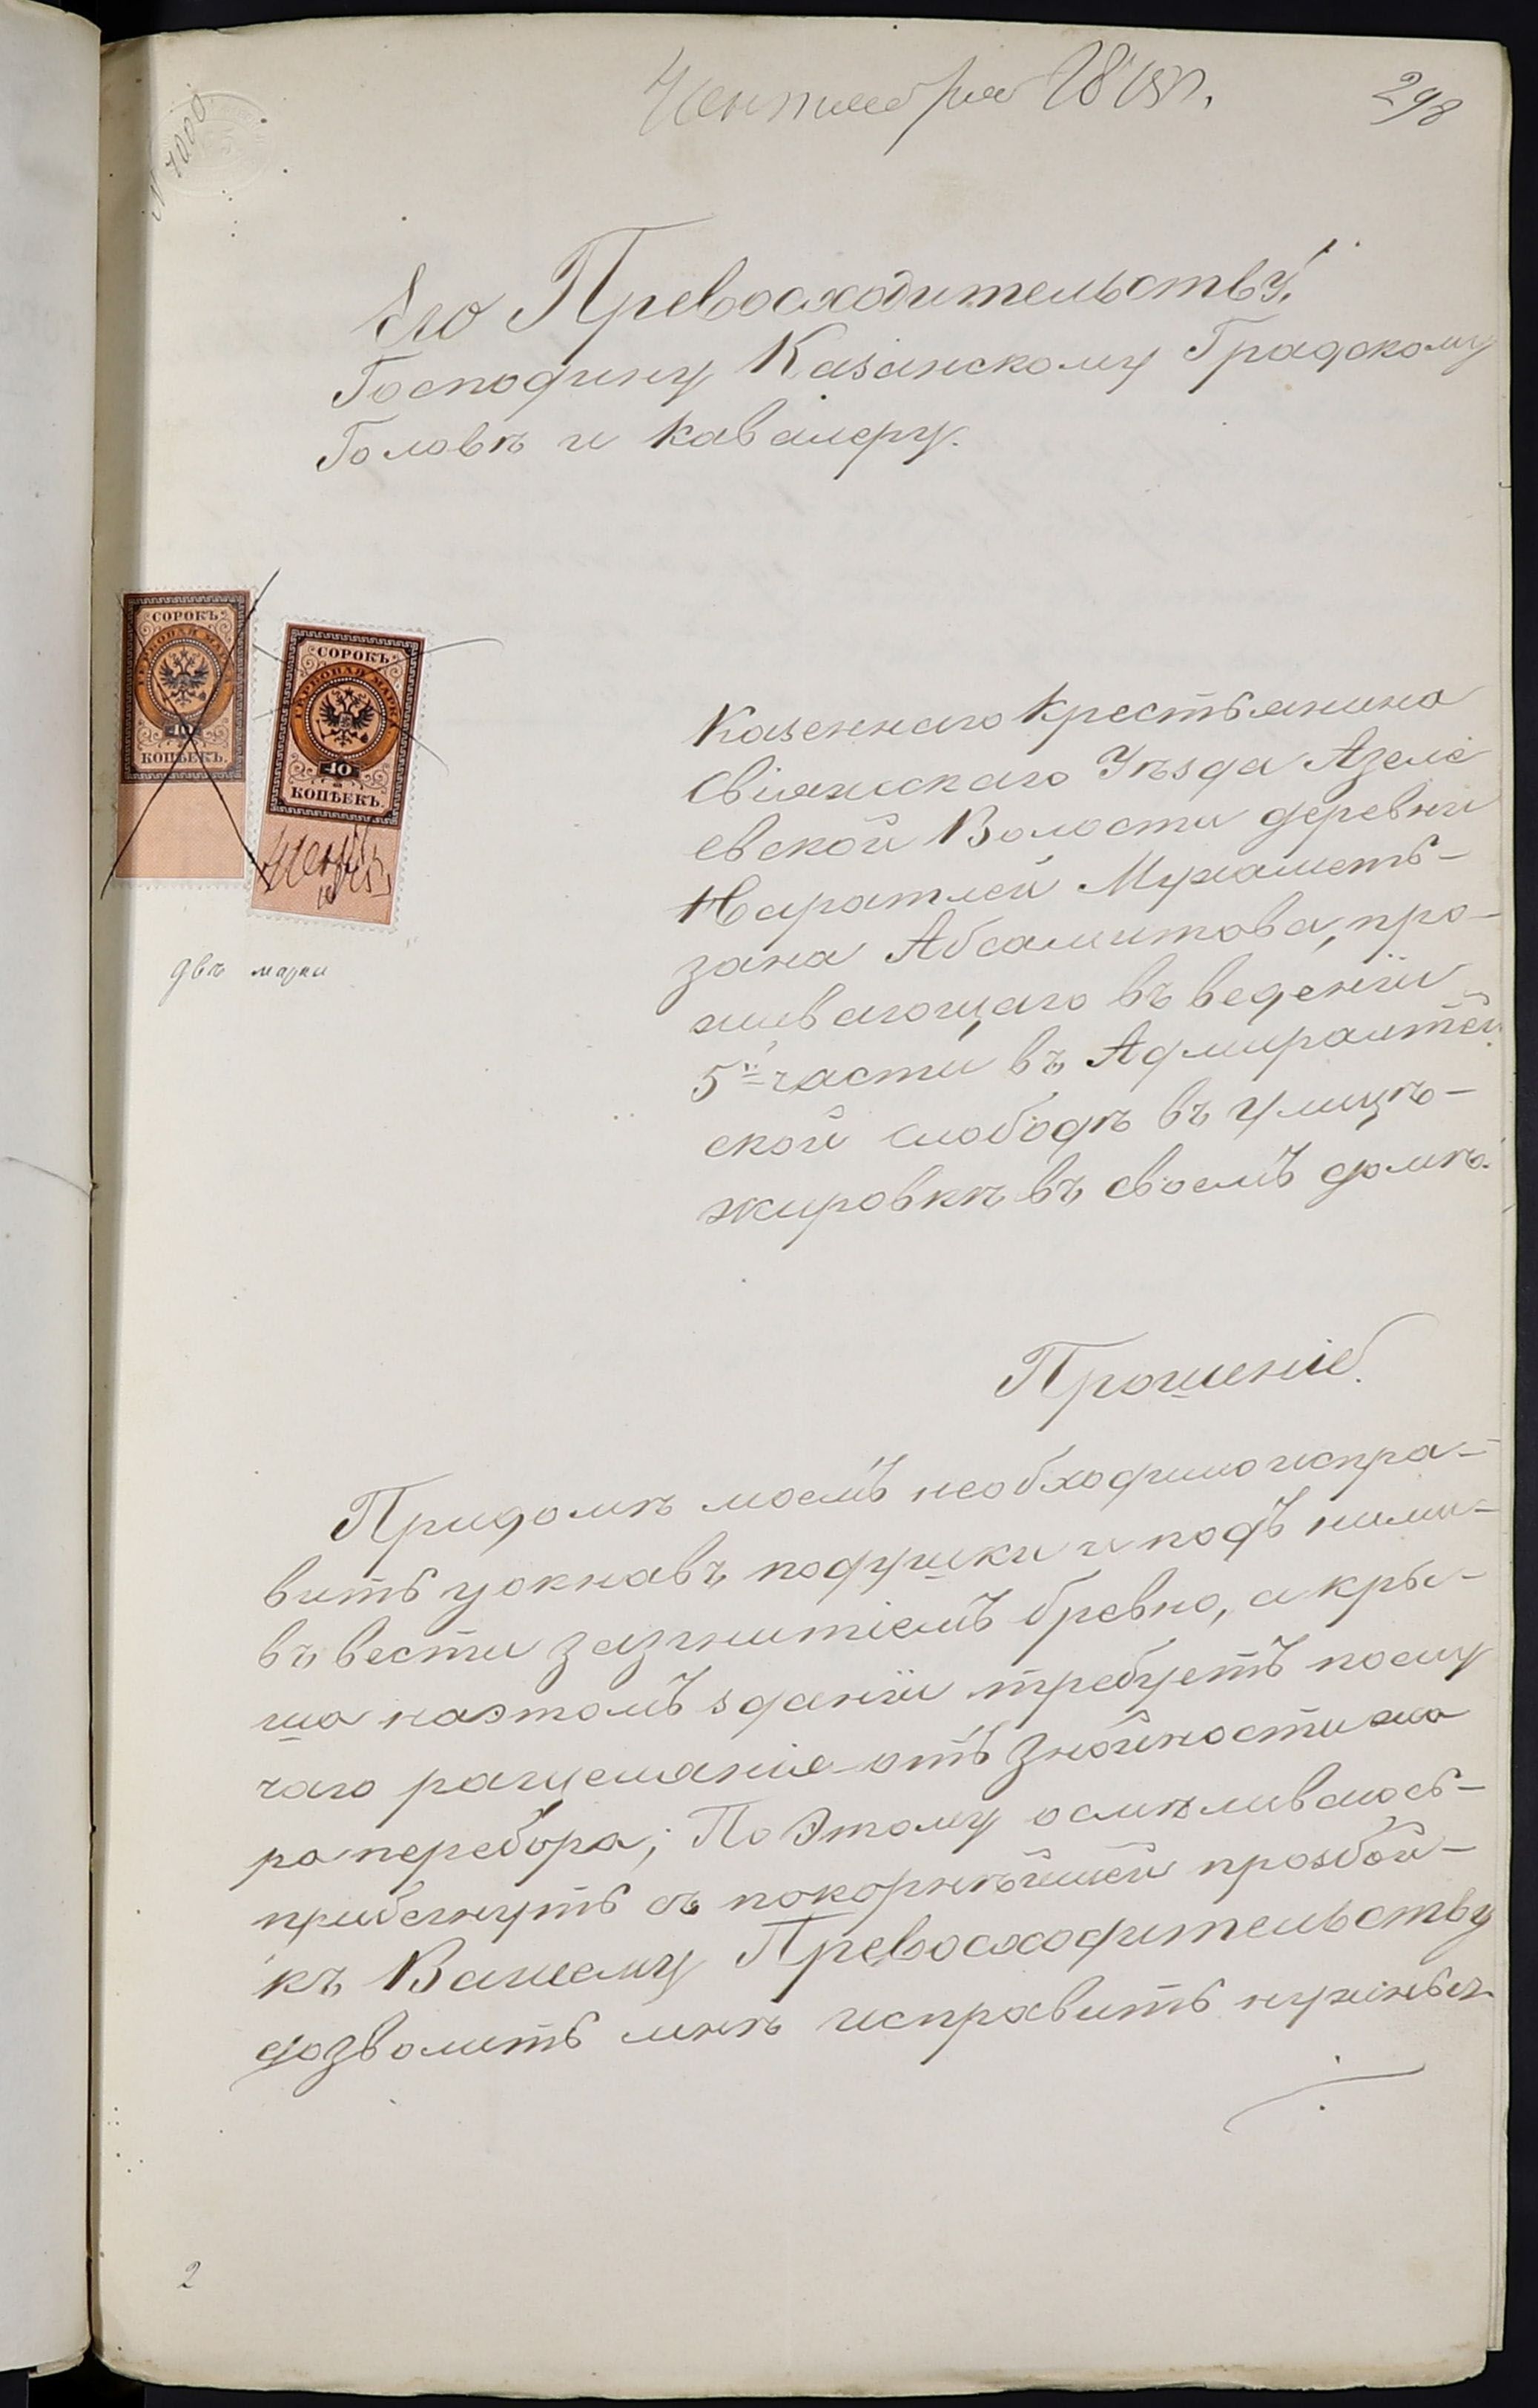 298
№ 7000
Его Превосходительству.
Господину Казанскому Градскому
Головѣ и Кавалеру.
СОРОКЪ
ГЕРБОВАЯ МАРКА
40
КОПѢЕКЪ.
СОРОКЪ
ГЕРБОВАЯ МАРКА
40
КОПѢЕКЪ.
двѣ марки
Казеннаго Крестьянина
Свіяжскаго Уѣзда Азеле
евской Волости деревни
Наратлей Мухаметь-
зана Абсалямова, про-
живающаго въ веденіи
5й части въ Адмиралтей
ской слободѣ въ улицѣ-
жировкѣ въ своемъ домѣ.
Прошеніе.
Придомѣ моемъ необходимо испра-
вить уокнавъ подушки и подъ ними-
въвести загнитіемъ бревно, а кры-
ша наэтомъ зданіи требуетъ послу
чаго ращеляніе отъ знойности жа
ра перебора; По Этому осмѣливаюсь-
прибегнуть съ покорнѣйшей прозбой-
къ Вашему Превосходительству
дозволить мнѣ исправить нужныя
2